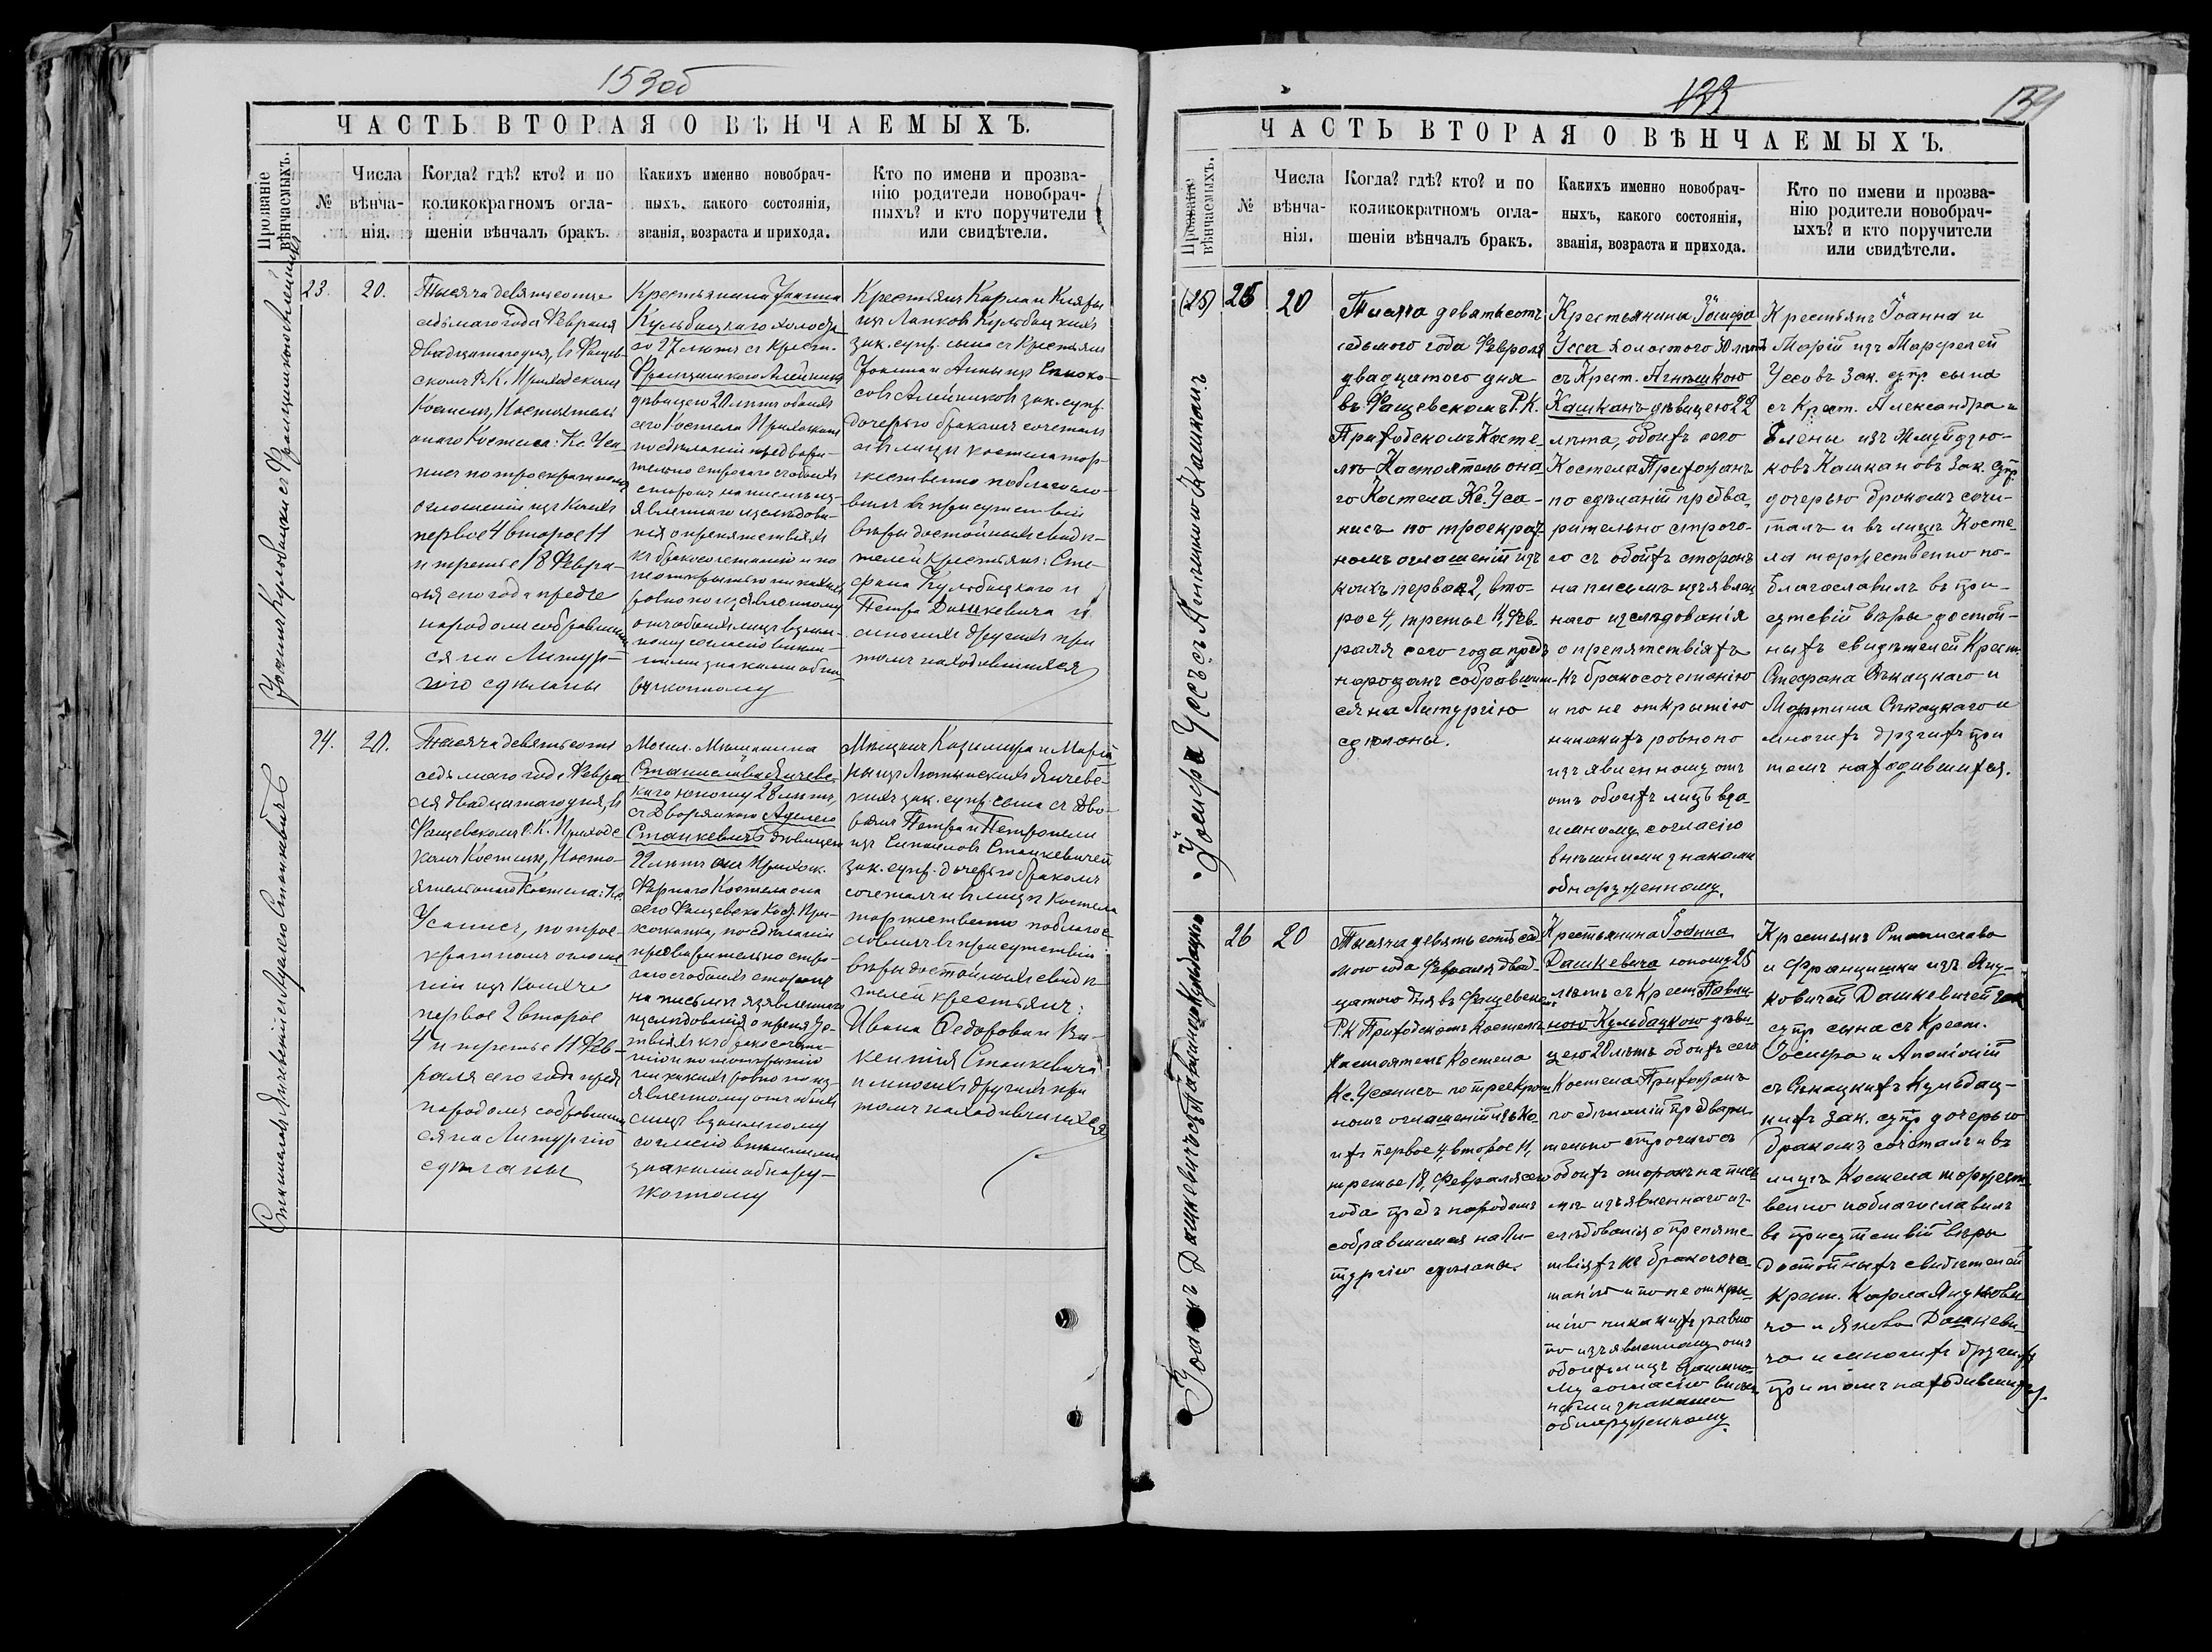 153об
ЧАСТЬ ВТОРАЯ О ВѢНЧАЕМЫХЪ.
Прозваніе вѣнчаемыхъ.
№
Числа
вѣнча-
нія.
Когда? гдѣ? кто? и по
коликократномъ огла-
шеніи вѣнчалъ бракъ.
Какихъ именно новобрач-
ныхъ, какого состоянія,
званія, возраста и прихода.
Кто по имени и прозва-
нію родители новобрач-
ныхъ? и кто поручители
или свидѣтели.
23.
20.
Тысяча девятьсотъ
седьмаго года Февраля
двадцатаго дня, въ Фащев-
скомъ Р. К. Приходскомъ
Костелѣ, Настоятель
онаго Костела: Кс. Уса-
нисъ по троекратномъ
оглошеніи изъ коихъ
первое 4 второе 11
и третье 18 Февра-
ля сего года предъ
народомъ собравшим
ся на Литур-
гію сдѣланы
Крестьянина Іоанна
Кульбацкаго холоста
го 27 лѣтъ съ Крест.
Францишкою Алейникъ
дѣвицею 20 лѣтъ обоихъ
сего Костела Прихожанъ
по сдѣланіи предвари-
тельно строгаго съ обоихъ
сторонъ на письмѣ из-
явленнаго изслѣдова-
нія о препятствіяхъ
къ бракосочетанію и по
неоткрытію никакихъ
ровно по изъявленному
отъ обоихъ лицъ взаим-
ному согласію внѣш-
ними знаками обна
руженному
Крестьянъ Карла и Клары
изъ Лапковъ Кульбацкихъ
зак. супр. сына съ Крестьянъ
Іоанна и Анны изъ
Алейниковъ зак. супр.
дочерью бракомъ сочеталъ
и въ лицѣ костела тор-
жественно поблагосло-
вилъ въ присутствіи
вѣры достойныхъ свидѣ-
телей Крестьянъ: Сте-
фана Кульбацкаго и
Петра Дашкевича и
многихъ другихъ при
томъ находившихся
24.
20.
Тысяча девятьсотъ
седьмаго года Февра
ля двадцатаго дня, въ
Фащевскомъ Р. К. Приходс
комъ Костелѣ, Насто-
ятель онаго Костела: Кс.
Усанисъ, по трое-
кратномъ оглоше
ніи изъ коихъ
первое 2 второе
4 и третье 11 Фев-
раля сего года предъ
народомъ собравшим
ся на Литургію
сдѣланы
Могил. Мѣщанина
Станислава Яичевс-
каго юношу 28 лѣтъ,
съ Дворянкою Аделею
Станкевичъ дѣвицею
22 лѣтъ онъ Прихож.
Фарнаго Костела она
сего Фащевско Кост. При-
хожанка, по сдѣланіи
предварительно стро-
гаго съ обоихъ сторонъ
на письмѣ изявленнаго
изслѣдованія о препятс-
твіяхъ къ бракосочета-
нію и по неоткрытію
никакихъ ровно по из-
явленному отъ обоихъ
лицъ взаимному
согласію внѣшними
знаками обнару-
женному
Мѣщанъ Казимира и Марі
ны изъ Лотынскихъ Яичевс-
кихъ зак. супр. сына съ Дво-
рянъ Петра и Петронели
изъ Станкевичей
зак. супр. дочерью бракомъ
сочеталъ и въ лицѣ Костела
торжественно поблагос
ловилъ въ присутствіи
вѣры достойныхъ свидѣ
телей крестьянъ:
Ивана Федорова и Ви-
кентія Станкевича
и многихъ другихъ при
томъ находившихся
Іоаннъ Кульбацкій съ Францишкою Алейникъ
Станиславъ Яичевскій съ Аделею Станкевичъ
133
154
ЧАСТЬ ВТОРАЯ О ВѢНЧАЕМЫХЪ.
Прозваніе вѣнчаемыхъ.
№
Числа
вѣнча-
нія.
Когда? гдѣ? кто? и по
коликократномъ огла-
шеніи вѣнчалъ бракъ.
Какихъ именно новобрач-
ныхъ, какого состоянія,
званія, возраста и прихода.
Кто по имени и прозва-
нію родители новобрач-
ыхъ? и кто поручители
или свидѣтели.
(25)
25
20
Тысяча девятьсотъ
седьмого года Февраля
двадцатого дня
въ Фащевскомъ Р. К.
Приходскомъ Косте-
лѣ Настоятель она
го Костела Кс. Уса-
нисъ по троекрат
номъ оглошеніи изъ
коихъ первое 2, вто-
рое 4, третье 11, Фев-
раля сего года предъ
народомъ собравшим-
ся на Литургію
сдѣланы.
Крестьянина Іосифа
Усса холостого 30 лѣтъ
съ Крест. Агнѣшкою
Кашканъ дѣвицею 22
лѣта, обоихъ сего
Костела Прихожанъ
по сдѣланій предва
рительно строго-
го съ обоихъ сторонъ
на письмѣ изъявлен
наго изслѣдованія
о препятствіяхъ
къ бракосочетанію
и по не открытію
никакихъ ровно по
изъявленному отъ
отъ обоихъ лицъ вза
имному согласію
внѣшними знаками
обнаруженному.
Крестьянъ Іоанна и
Марій изъ Марфелей
Уссовъ зак. супр. сына
съ Крест. Александра и
Елены изъ Жмуйдзю-
ковъ Кашкановъ зак. супр.
дочерью бракомъ соче-
талъ и въ лицѣ Косте-
ла торжественно по-
благославилъ въ при-
сутсвій вѣры достой-
ныхъ свидѣтелей Крест.
Стефана Сѣкацкаго и
Мартина Сѣкацкаго и
многихъ другихъ при
томъ находившихся.
26
20
Тысяча девятьсотъ сед
мого года Февраля двад-
цатого дня въ Фащевском
Р. К. Приходскомъ Костелѣ
Настоятель Костела
Кс. Усанисъ по троекрат
номъ оглашеній изъ ко-
ихъ первое 4, второе 11,
третье 18, Февраля сего
года предъ народомъ
собравшимся на Ли-
тургію сдѣланы.
Крестьянина Іоанна
Дашкевича юношу 25
лѣтъ съ Крест. Павли-
ною Кульбацкою дѣви
цею 20 лѣтъ обоихъ сего
Костела Прихожанъ
по сдѣланій предвари
тельно строгаго съ
обоихъ сторонъ на пись
мѣ изъявленнаго из-
слѣдованія о препятс
твіяхъ къ бракосоче-
танію и по не откры-
тію никакихъ равно
по изъявленному отъ
обоихъ лицъ взаимно-
му согласію внѣш-
ними знаками
обнаруженному.
Крестьянъ Станислава
и Францишки изъ Яну-
ковичей Дашкевичей зак
супр. сына съ Крест.
Іосифа и Апонійй
съ Сѣкацкихъ Кульбац-
кихъ зак. супр. дочерью
бракомъ сочеталъ и въ
лицѣ Костела торжест-
венно поблагославилъ
въ присутствій вѣры
достойныхъ свидѣтелей
Крест. Карла Януковi
ча и Якова Дашкеви-
ча и многихъ другихъ
при томъ находившихся.
Іосифъ Уссъ съ Агнешкою Кашканъ
Іоаннъ Дашкевичъ съ Павлиною Кульбацкою